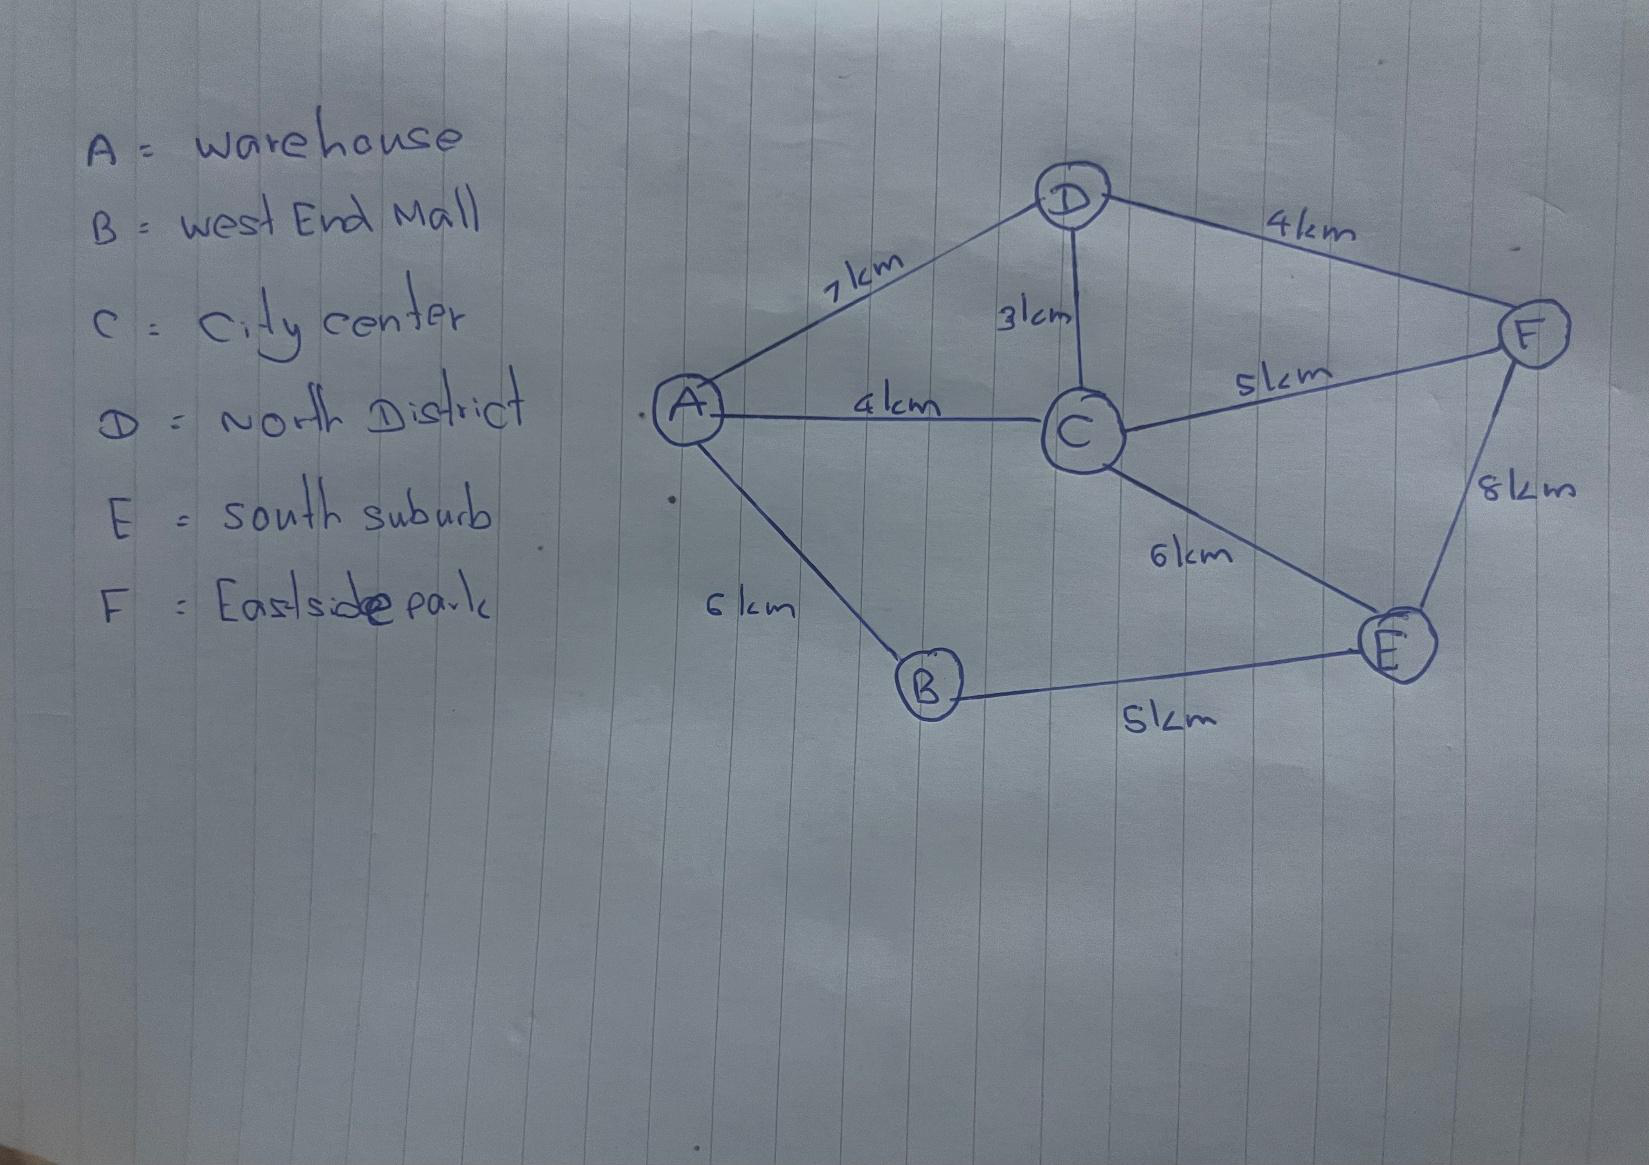 A = warehouse
B = west End Mall
C = City center
D = North District
E = south suburb
F = Eastside park
D
4km
7km
3km
F
5km
A
4km
C
8km
6km
6km
E
B
5km